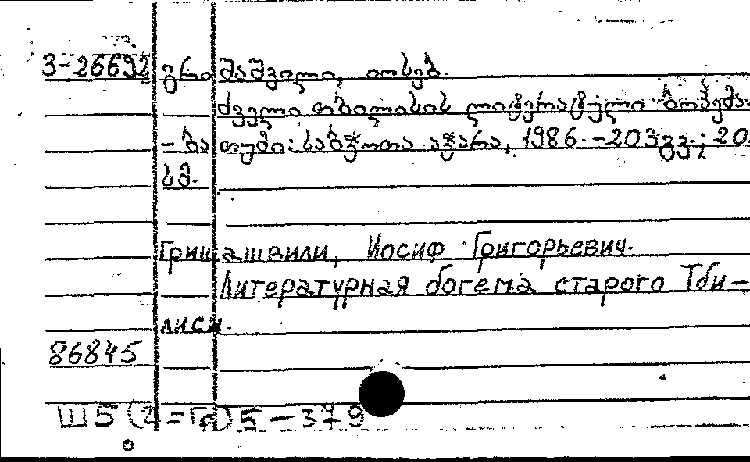 3-26692 გრიშაშვილი, იოსებ.
ძველი თბილისის ლიტერატურული ბოჰემა.
-ბათუმი: საბჭოთა აჭარა, 1986.-203გვ.; 20
სმ.
Гришашвили, Иосиф Григорьевич.
Литературная богема старого Тби-
лиси.
86845
Ш5(2=Гр)5-379